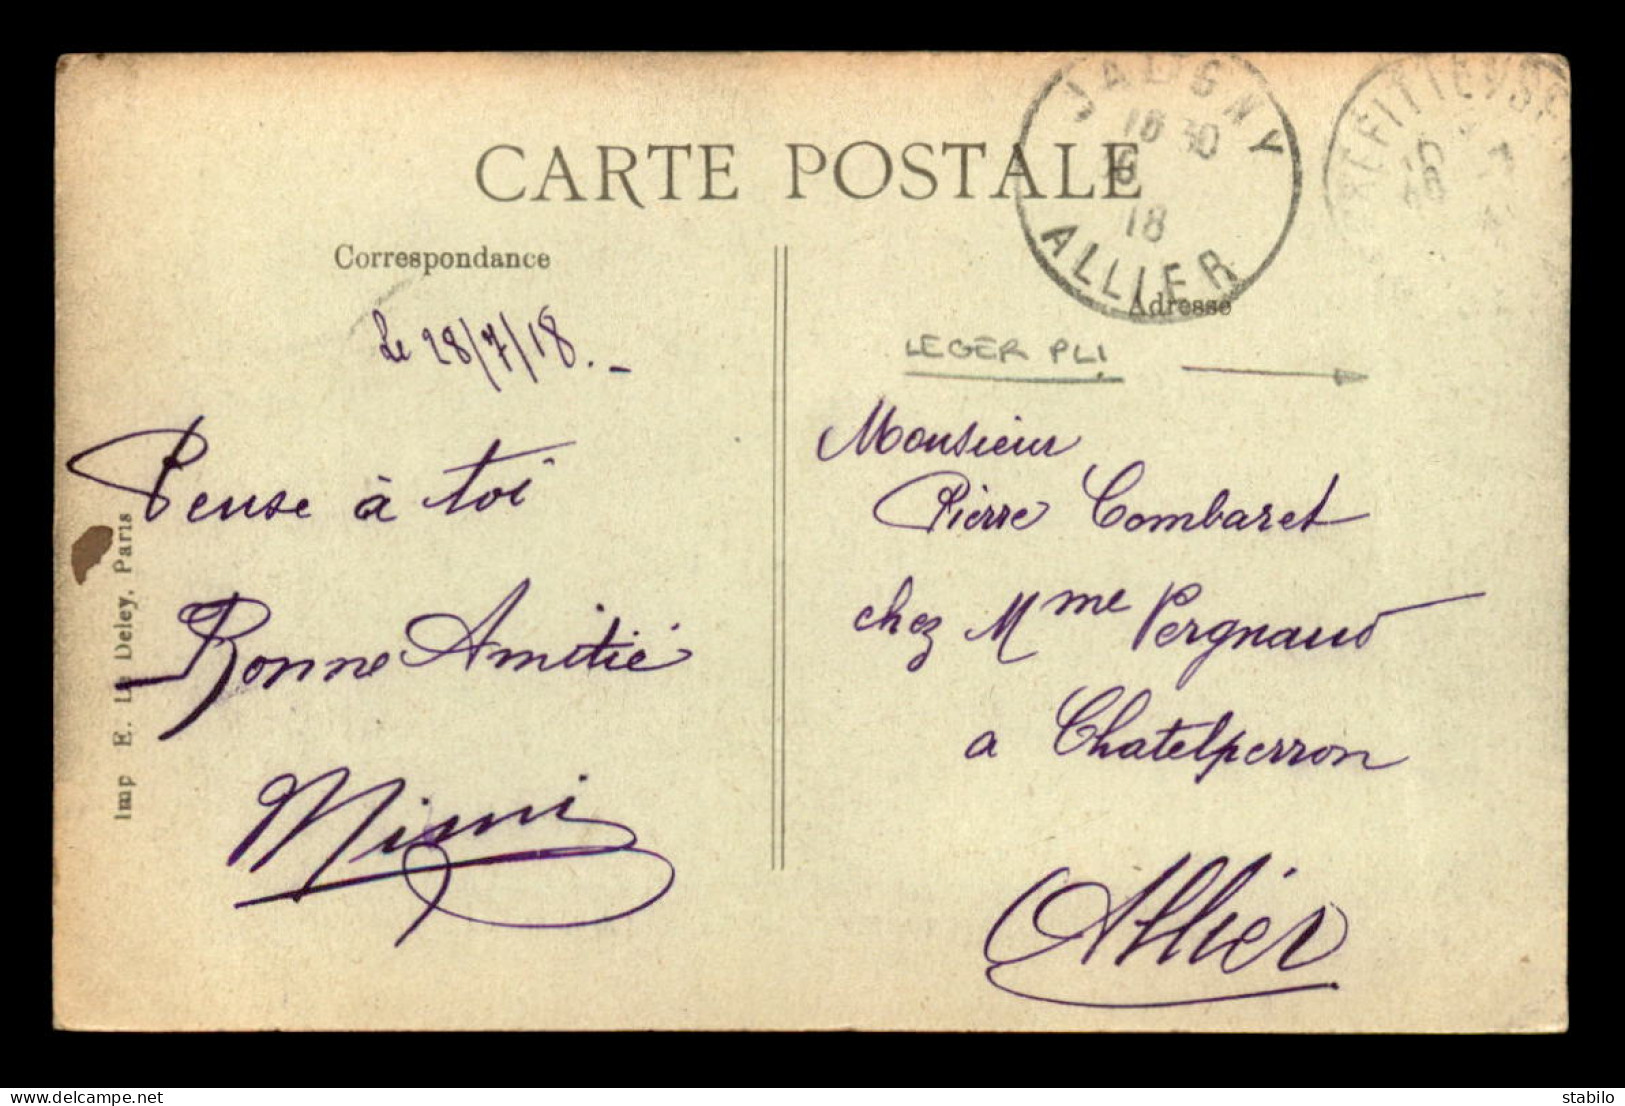 CARTE POSTALE
JALIGNY
18
ALLIER
Correspondance
Adresse
Le 28/7/18._
LEGER PLI
Monsieur
Pense à toi
Pierre Combaret
chez Mme Pergnaud
Bonne Amitié
a Chatelperron
Mimi
Allier
Imp E. Le Deley, Paris
www.delcampe.net
stabilo